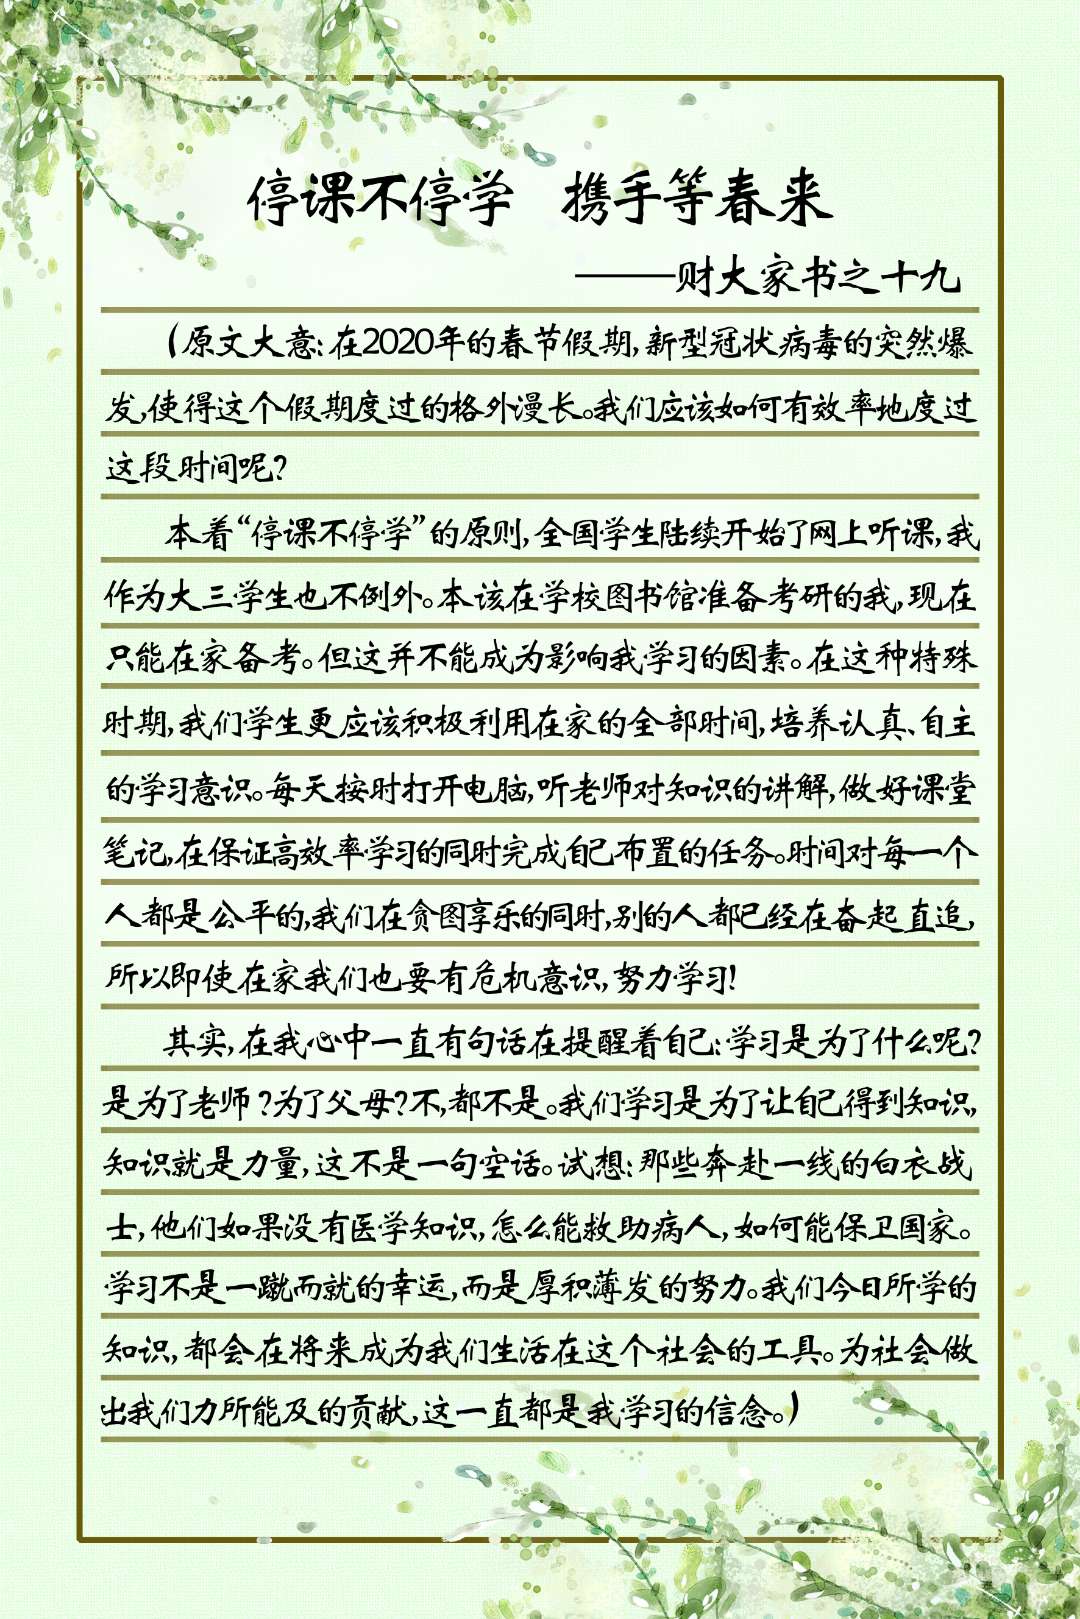 停课不停学 携手等春来
——财大家书之十九
(原文大意:在2020年的春节假期,新型冠状病毒的突然爆
发,使得这个假期度过的格外漫长。我们应该如何有效率地度过
这段时间呢?
本着“停课不停学”的原则,全国学生陆续开始了网上听课,我
作为大三学生也不例外。本该在学校图书馆准备考研的我,现在
只能在家备考。但这并不能成为影响我学习的因素。在这种特殊
时期,我们学生更应该积极利用在家的全部时间,培养认真、自主
的学习意识。每天按时打开电脑,听老师对知识的讲解,做好课堂
笔记,在保证高效率学习的同时完成自己布置的任务。时间对每一个
人都是公平的,我们在贪图享乐的同时,别的人都已经在奋起直追,
所以即使在家我们也要有危机意识,努力学习!
其实,在我心中一直有句话在提醒着自己:学习是为了什么呢?
是为了老师?为了父母?不,都不是。我们学习是为了让自己得到知识,
知识就是力量,这不是一句空话。试想:那些奔赴一线的白衣战
士,他们如果没有医学知识,怎么能救助病人,如何能保卫国家。
学习不是一蹴而就的幸运,而是厚积薄发的努力。我们今日所学的
知识,都会在将来成为我们生活在这个社会的工具。为社会做
出我们力所能及的贡献,这一直都是我学习的信念。)